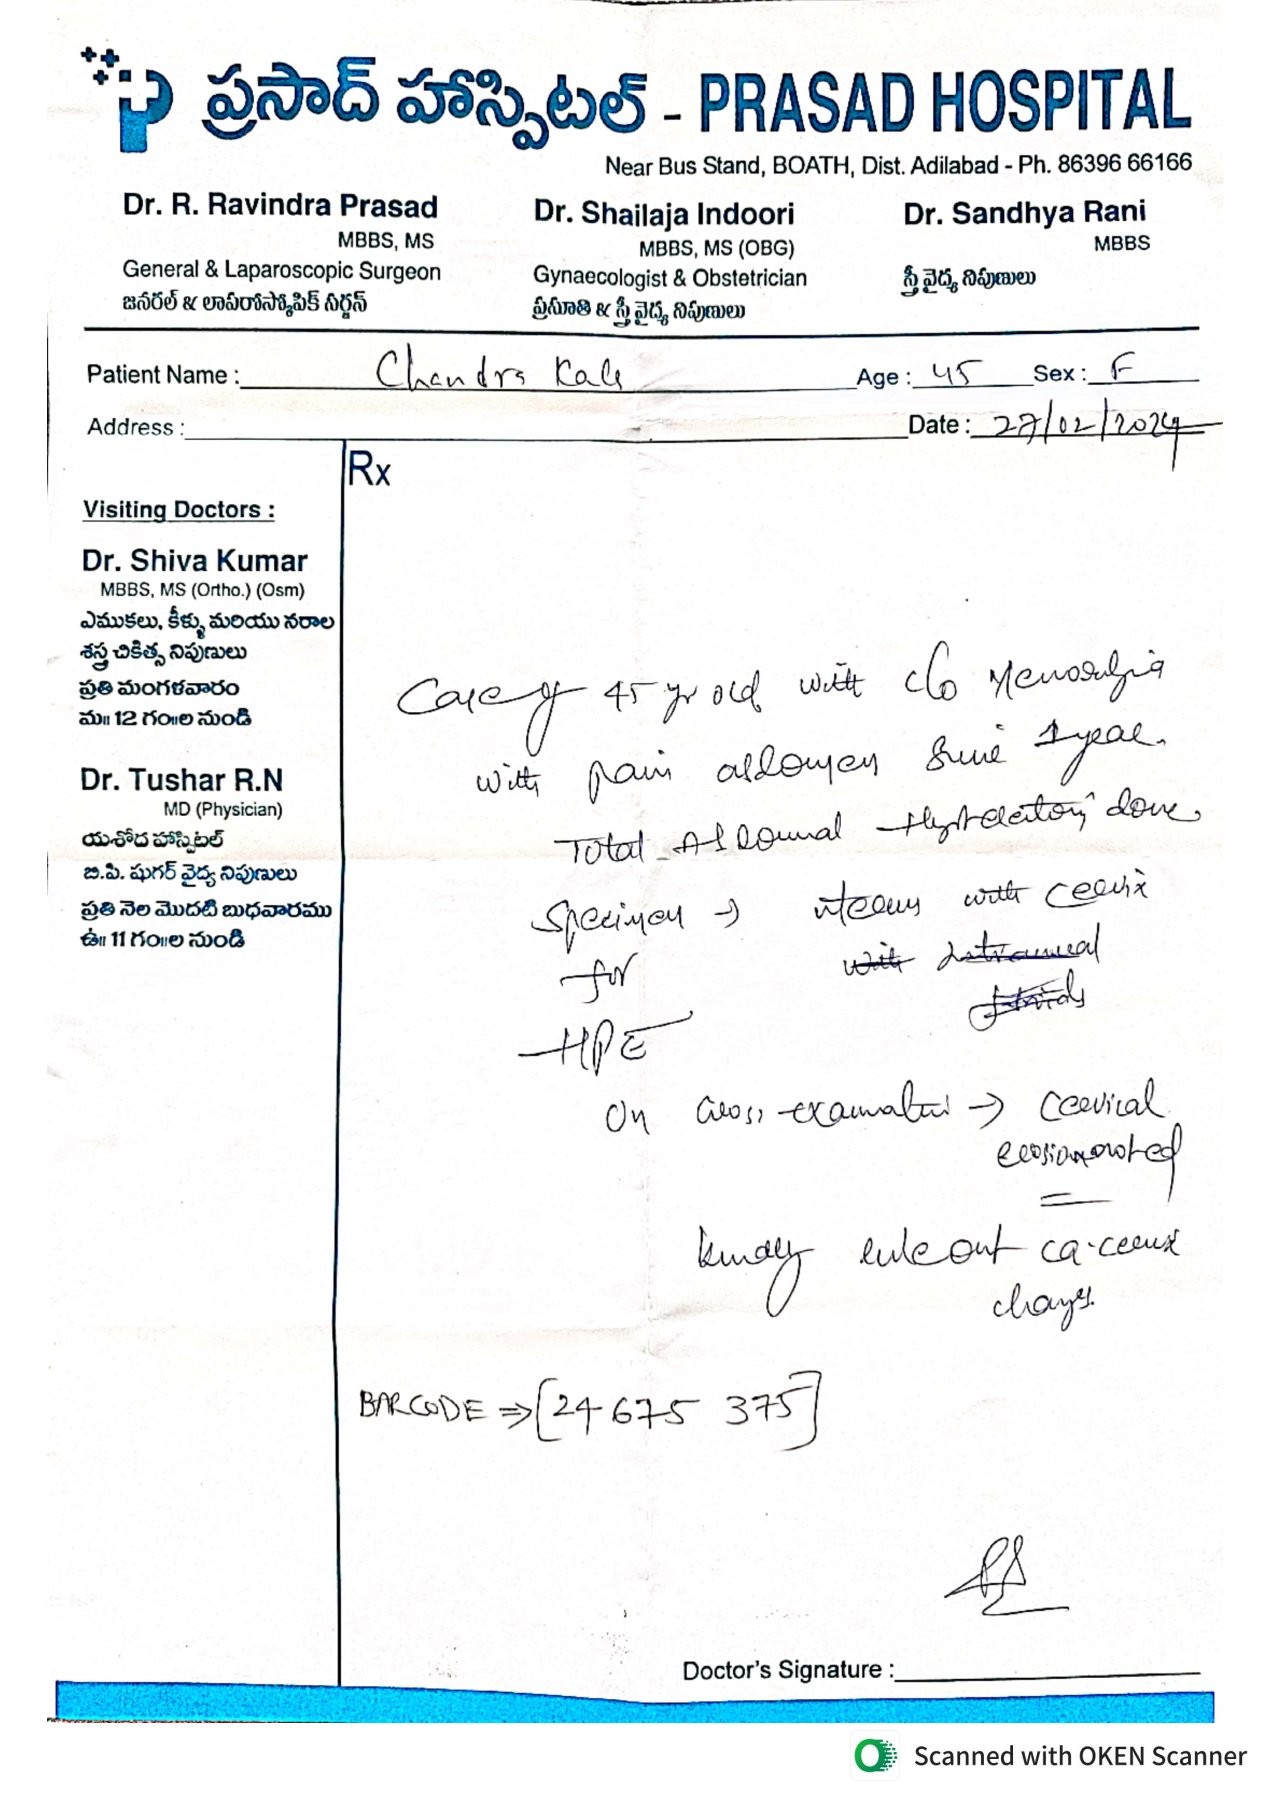 ప్రసాద్ హాస్పిటల్ - PRASAD HOSPITAL
Near Bus Stand, BOATH, Dist. Adilabad - Ph. 86396 66166
Dr. R. Ravindra Prasad
MBBS, MS
General & Laparoscopic Surgeon
జనరల్ & లాపరోస్కోపిక్ సర్జన్
Dr. Shailaja Indoori
MBBS, MS (OBG)
Gynaecologist & Obstetrician
ప్రసూతి & స్త్రీ వైద్య నిపుణులు
Dr. Sandhya Rani
MBBS
స్త్రీ వైద్య నిపుణులు
Patient Name : Chandra Kala Age : 45 Sex : F
Address : Date : 27/02/2024
Rx
Visiting Doctors :
Dr. Shiva Kumar
MBBS, MS (Ortho.) (Osm)
ఎముకలు, కీళ్ళు మరియు నరాల
శస్త్ర చికిత్స నిపుణులు
ప్రతి మంగళవారం
మ॥ 12 గం॥ల నుండి
Dr. Tushar R.N
MD (Physician)
యశోద హాస్పిటల్
బి.పి. షుగర్ వైద్య నిపుణులు
ప్రతి నెల మొదటి బుధవారము
ఉ॥ 11 గం॥ల నుండి
Case of 45 yr old with c/o Menorrhagia
with pain abdomen since 1 year.
Total Abdominal Hysterectomy done.
Specimen → uterus with cervix
for with Intramural
fibroids
HPE
On Gross examination → Cervical
erosion noted
kindly rule out ca-cervix
changes.
BARCODE ⇒ [24675 375]
Doctor's Signature :
Scanned with OKEN Scanner